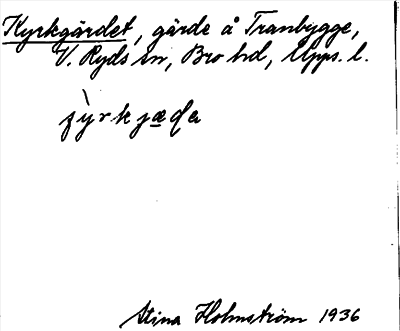 Kyrkgärdet, gärde å Tranbygge,
V. Ryds sn, Bro hd, Upps. l.
Stina Holmström 1936